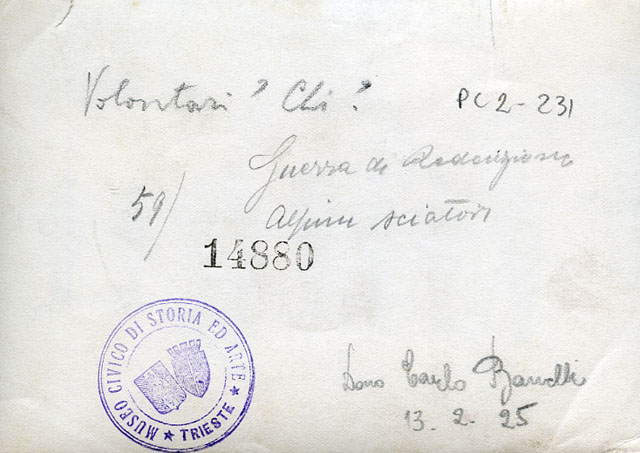 Volontari? Chi?
PC2-231
Guerra di Redenzione
59/
Alpini sciatori
14880
MUSEO CIVICO DI STORIA ED ARTE
★ TRIESTE ★
Dono Carlo
13.2.25